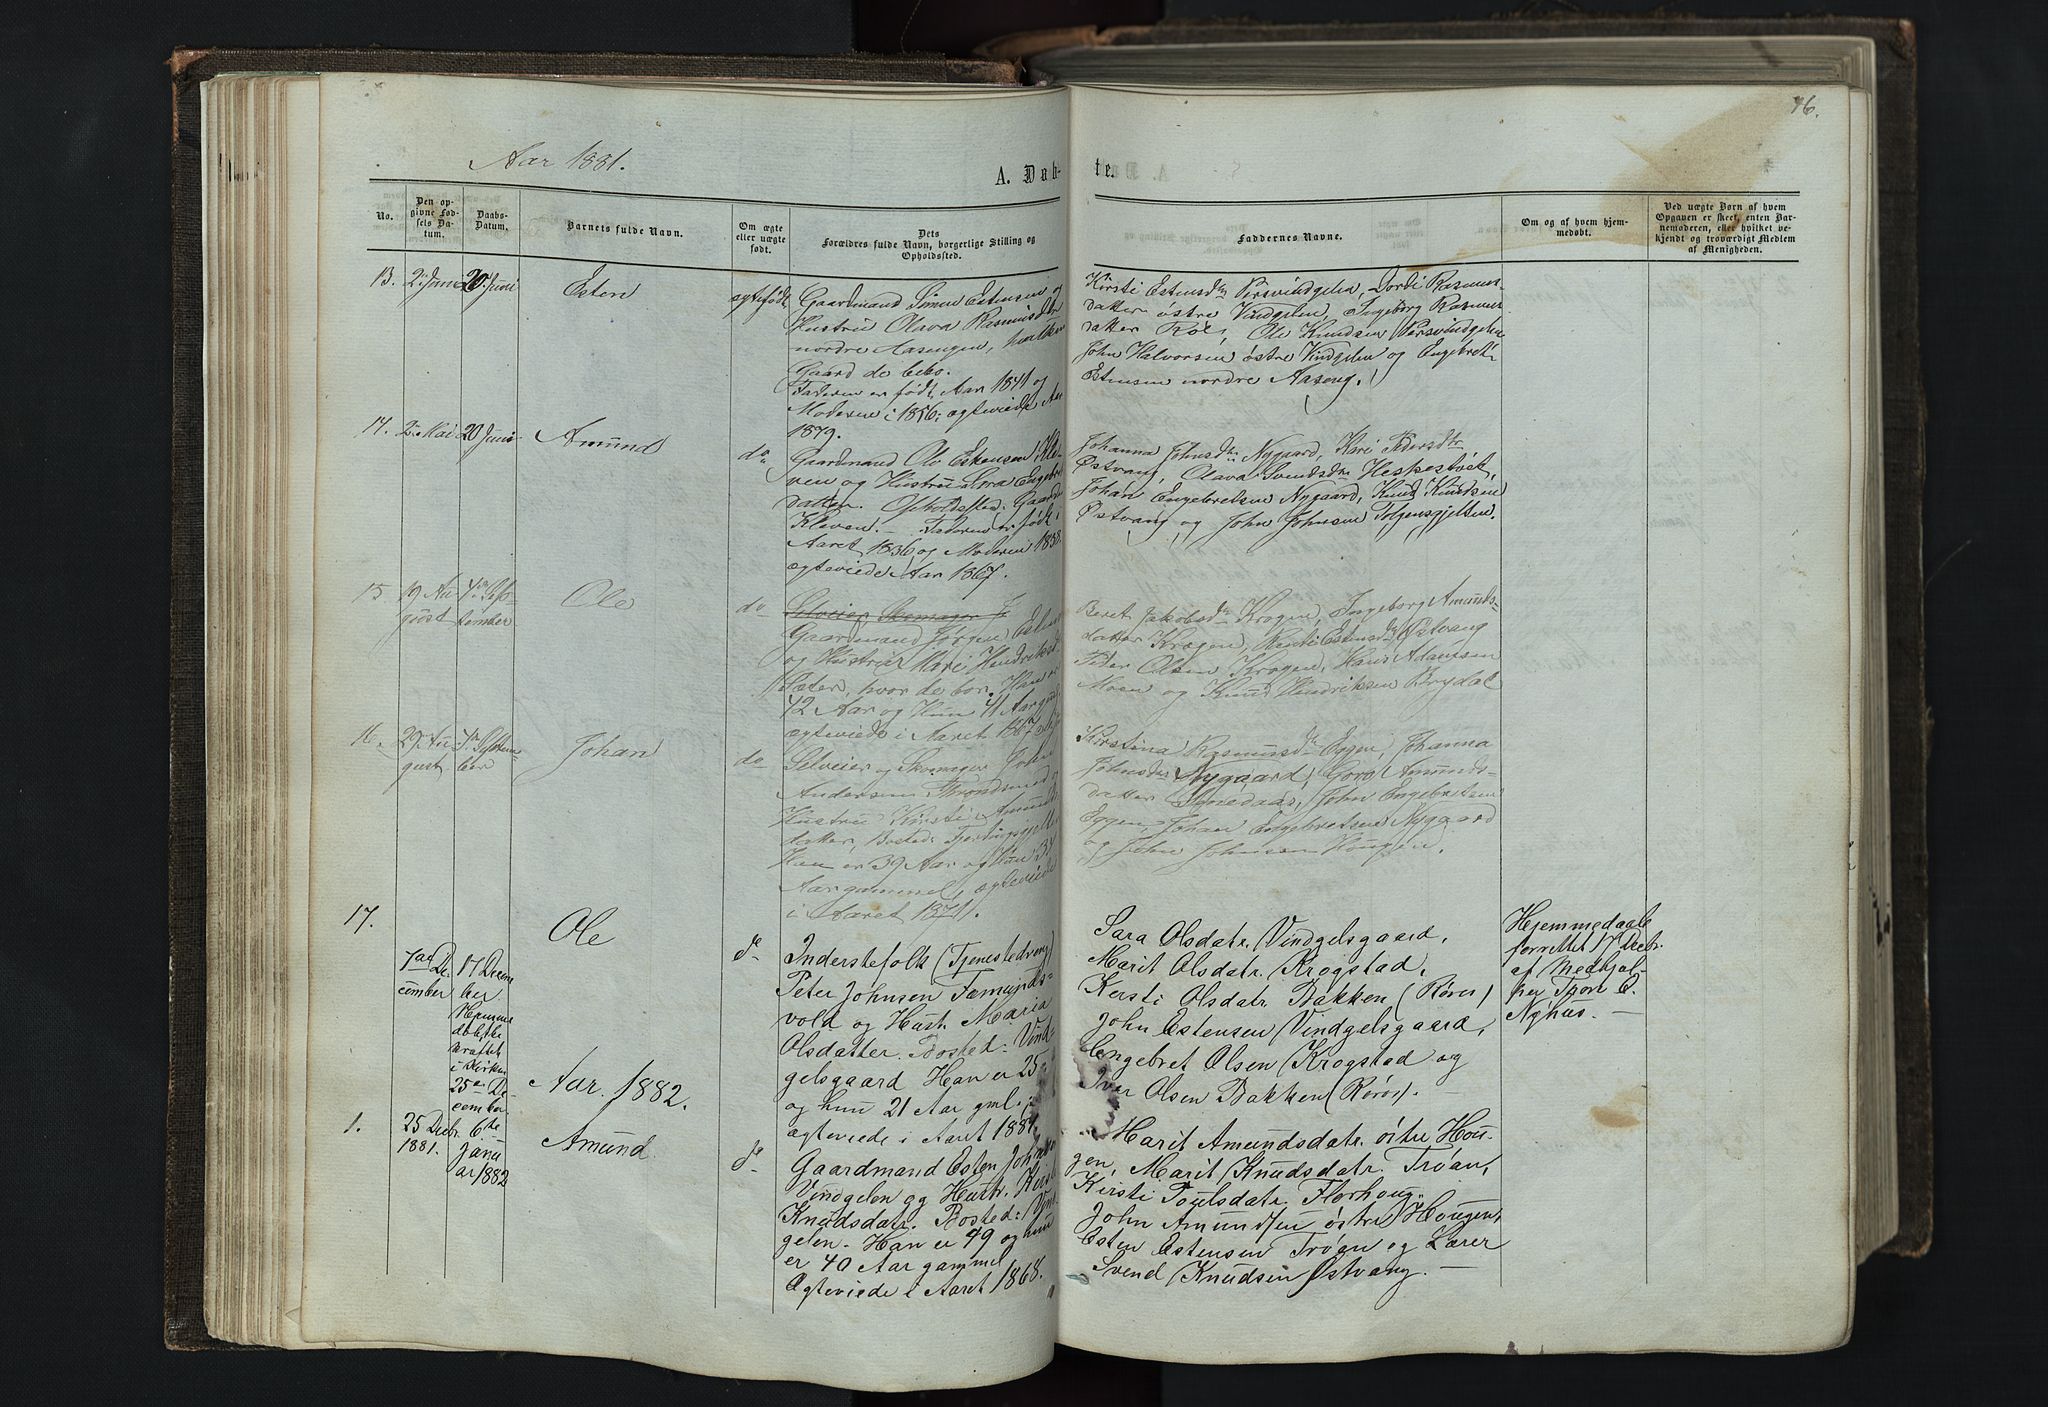 Aar 1881.
A. Døb-
te.
76.
No.
Den op-
givne Fød-
sels Da-
tum.
Daabs-
Datum.
Barnets fulde Navn.
Om ægte
eller uægte
født.
Dets
Forældres fulde Navn, borgerlige Stilling og
Opholdssted.
Faddernes Navne.
Om og af hvem hjem-
medøbt.
Ved uægte Børn af hvem
Opgaven er skeet, enten Bar-
nemoderen, eller hvilket ve-
kjendt og troværdigt Medlem
af Menigheden.
13.
2. Juni
20. Juni
Esten
ægtefødt
Gaardmand Simen Estensen og
Hustru Olava Rasmusdtr
nordre Aasengen, hvilken
Gaard de bebo.
Faderen er født Aar 1841 og
Moderen i 1856; ægteviede Aar
1879.
Kirsti Estensdtr Persvindgelen, Dordi Rasmus-
datter østre Vindgelen, Ingeborg Rasmus-
datter Roe, Ole Knudsen Persvindgelen
John Halvorsen østre Vindgelen og Engebret
Estensen nordre Aaseng.
14.
2. Mai
20 Juni
Amund
do
Gaardmand Ole Estensen Kle-
ven og Hustru Engebret
datter. Opholdssted: Gaarden
Kleven. Faderen er født i
Aaret 1836 og Moderen 1838.
ægteviede Aar 1867.
Johanna Johnsdtr Nygaard, Kari Pedersdtr
Østvang, Olava Svendsdtr
Johan Engebretsen Nygaard, Knud Knudsen
Østvang og John Johnsen Tolgensgjelten.
15
19 Au-
gust
4de Sep-
tember
Ole
do
Selveier Skomager J
Gaardmand Jørgen Esten
og Hustru Kari Hendriksd
Sæter, hvor de bor. Han er
42 Aar og Hun 41 Aar gml
ægteviede i Aaret 1867
Beret Jakobsdtr Krogen, Ingeborg Amunds-
datter Krogen, Estensdtr Østvang
Peder Olsen Krogen, Hans Adamsen
Moen og Knud Hendriksen Brydal
16.
29 Au-
gust
Septem-
ber
Johan
do
Selveier og Skomager John
Andersen Trondsmed og
Hustru Kirsti Amunds-
datter, Bosted: Fjerdingsgjelten
Han er 39 Aar og Hun 34
Aar gammel, ægteviede
i Aaret 1871.
Kirstina Rasmusdtr Eggen, Johanna
Johnsdtr Nygaard, Goro Amunds-
datter Smedaas, John Engebretsen
Eggen, Johan Engebretsen Nygaard
og John Johnsen Hougen.
17.
7de De-
cember
17 Decem
ber
Hjemme
daab
kræftet
i Kirken
25de De-
cember
Ole
do
Inderstefolk (Tjenestedreng)
Peter Johnsen Fæmunds-
vold og Hustr. Maria
Olsdatter. Bosted: Vind-
gelsgaard Han er 25
og hun 21 Aar gml.
ægteviede i Aaret 1881.
Sara Olsdatr. Vindgelsgaard,
Marit Olsdatr. Krogstad,
Kersti Olsdatr. Bakken (Røros)
John Estensen Vindgelsgaard,
Engebret Olsen Krogstad og
Iver Olsen Bakken (Røros).
Hjemmedaab
forrettet 17 Decbr.
af Medhjæl-
per Tore E.
Nyhus.
Aar 1882.
1.
25 Decbr.
1881.
6te
Janu
ar 1882
Amund
do
Gaardmand Esten Johnsen
Vindgelen og Hustr. Kirsti
Knudsdatr. Bosted: Vin-
gelen. Han er 49 og hun
er 40 Aar gammel
Ægteviede i Aaret 1868.
Marit Amundsdatr. østre Hou-
gen, Marit Knudsdatr. Trøan,
Kirsti Poulsdatr. Florhoug.
John Amundsen østre Hougen,
Esten Estensen Trøan og Lærer
Svend Knudsen Østvang.